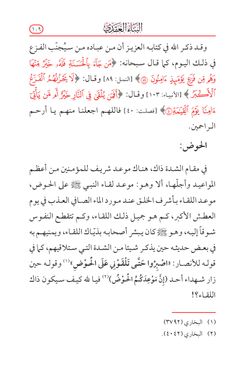 البناء العقدي
١٠٩
وقد ذكر الله في كتابه العزيز أن من عباده من سيُجنَّب الفزع
في ذلك اليوم، كما قال سبحانه: ﴿مَن جَآءَ بِٱلْحَسَنَةِ فَلَهُۥ خَيْرٌ مِّنْهَا
وَهُم مِّن فَزَعٍ يَوْمَئِذٍ ءَامِنُونَ ۝﴾ [النمل: ٨٩] وقال: ﴿لَا يَحْزُنُهُمُ ٱلْفَزَعُ
ٱلْأَكْبَرُ﴾ [الأنبياء: ١٠٣] وقال: ﴿أَفَمَن يُلْقَىٰ فِي ٱلنَّارِ خَيْرٌ أَم مَّن يَأْتِيٓ
ءَامِنًا يَوْمَ ٱلْقِيَـٰمَةِ﴾ [فصلت: ٤٠] فاللهم اجعلنا منهم يا أرحم
الراحمين.
الحوض:
في مقام الشدة ذاك، هناك موعد شريف للمؤمنين من أعظم
المواعيد وأجلّها، ألا وهو: موعد لقاء النبي ﷺ على الحوض،
موعد اللقاء بأشرف الخلق عند مورد الماء الصافي العذب في يوم
العطش الأكبر، كم هو جميل ذلك اللقاء، وكم تتقطع النفوس
شوقاً إليه، وهو ﷺ كان يبشر أصحابه بذيّاك اللقاء، ويمنيهم به
في بعض حديثه حين يذكر شيئا من الشدة التي ستلاقيهم، كما في
قوله للأنصار: «اصْبِرُوا حَتَّى تَلْقَوْنِي عَلَى الْحَوْضِ»(١) وقوله حين
زار شهداء أحد (إِنَّ مَوْعِدَكُمُ الْحَوْضُ)(٢) فيا لله كيف سيكون ذاك
اللقاء؟!
(١) البخاري (٣٧٩٢)
(٢) البخاري (٤٠٤٢).